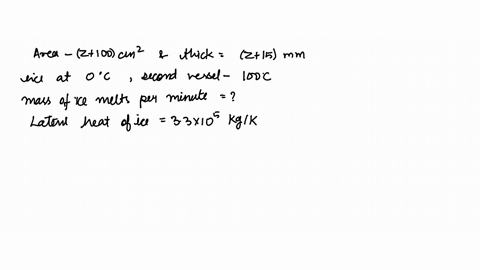 Area - (Z+100) cm² & thick = (Z+15) mm
ice at 0°C, second vessel - 100C
mass of ice melts per minute = ?
Latent heat of ice = 3.3×10⁵ Kg/K